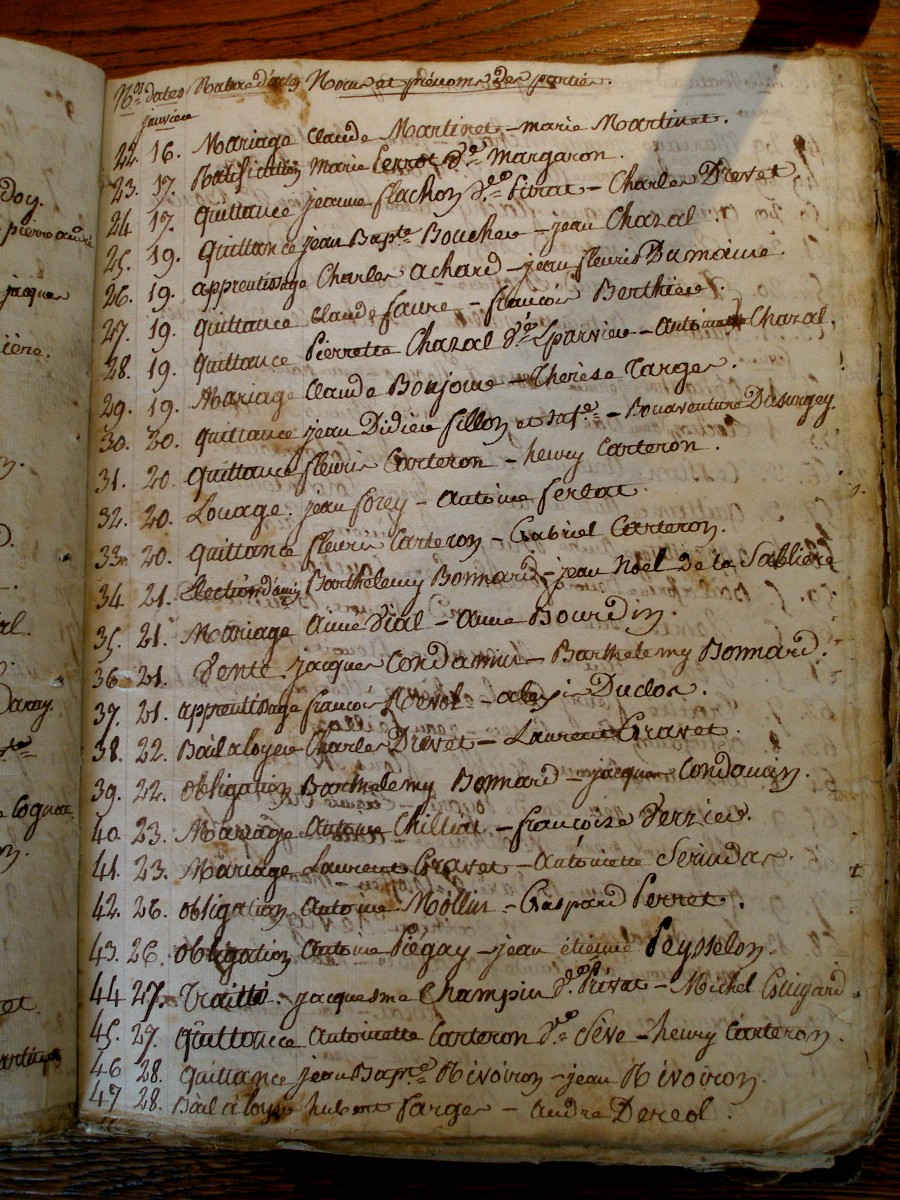 doy.
pierre andré
jacques
ière.
n.
al.
Daray.
Cognat.
n.
et.
Nos dates Nature d'actes Noms et prénoms des parties.
janvier
22. 16. Mariage Claude Martinet – marie Martinet.
23. 17. Ratification Marie Perrot Vve Margaron.
24 17. quittance jeanne flachon Vve Pitrat – Charles Drevet
25. 19. quittance jean Bapte Boucher – jean Chazal
26. 19. apprentissage Charles Achard – jean fleuris Dumaine
27. 19. quittance Claude faure – francois Berthier.
28. 19. quittance Pierrette Chazal Vve Eparvier – Antoine Chazal.
29. 19. Mariage Claude Bonjour – Thérèse Targes.
30. 20. quittance jean Didier fillon et sa fe – Bonaventure Desurgey.
31. 20 quittance fleuris Carteron – henry Carteron.
32. 20. Louage. jean forey – Antoine ferlat.
33. 20. quittance fleuris Carteron – Gabriel Carteron.
34 21. Election d'amis Barthelemy Bonnard – jean Noël de la Sabliere
35. 21. Mariage Aimé Vial – Anne Bourdin.
36. 21. Vente. jacques Condamin – Barthelemy Bonnard.
37. 21. apprentissage francois Revol – alexis Duclos.
38. 22. Bail à loyer Charles Drevet – Laurent Gravet.
39. 22. obligation Barthelemy Bonnard – jacques Condamin.
40. 23. Mariage Antoine Chilliat – françoise Verrier.
41. 23. Mariage Laurent Gravet – Antoinette Serindas.
42. 26. obligation Antoine Mollin – Gaspard Perret.
43. 26. obligation Antoine Piégay – jean étienne Peysselon.
44 27. Traitté. jacquesme Champin Vve Privat – Michel Guigard.
45. 27. quittance Antoinette Carteron Vve Sève – henry Carteron.
46 28. quittance jean Bapte Rivoiron – jean Rivoiron.
47 28. Bail à loyer hubert farges – André Dereol.